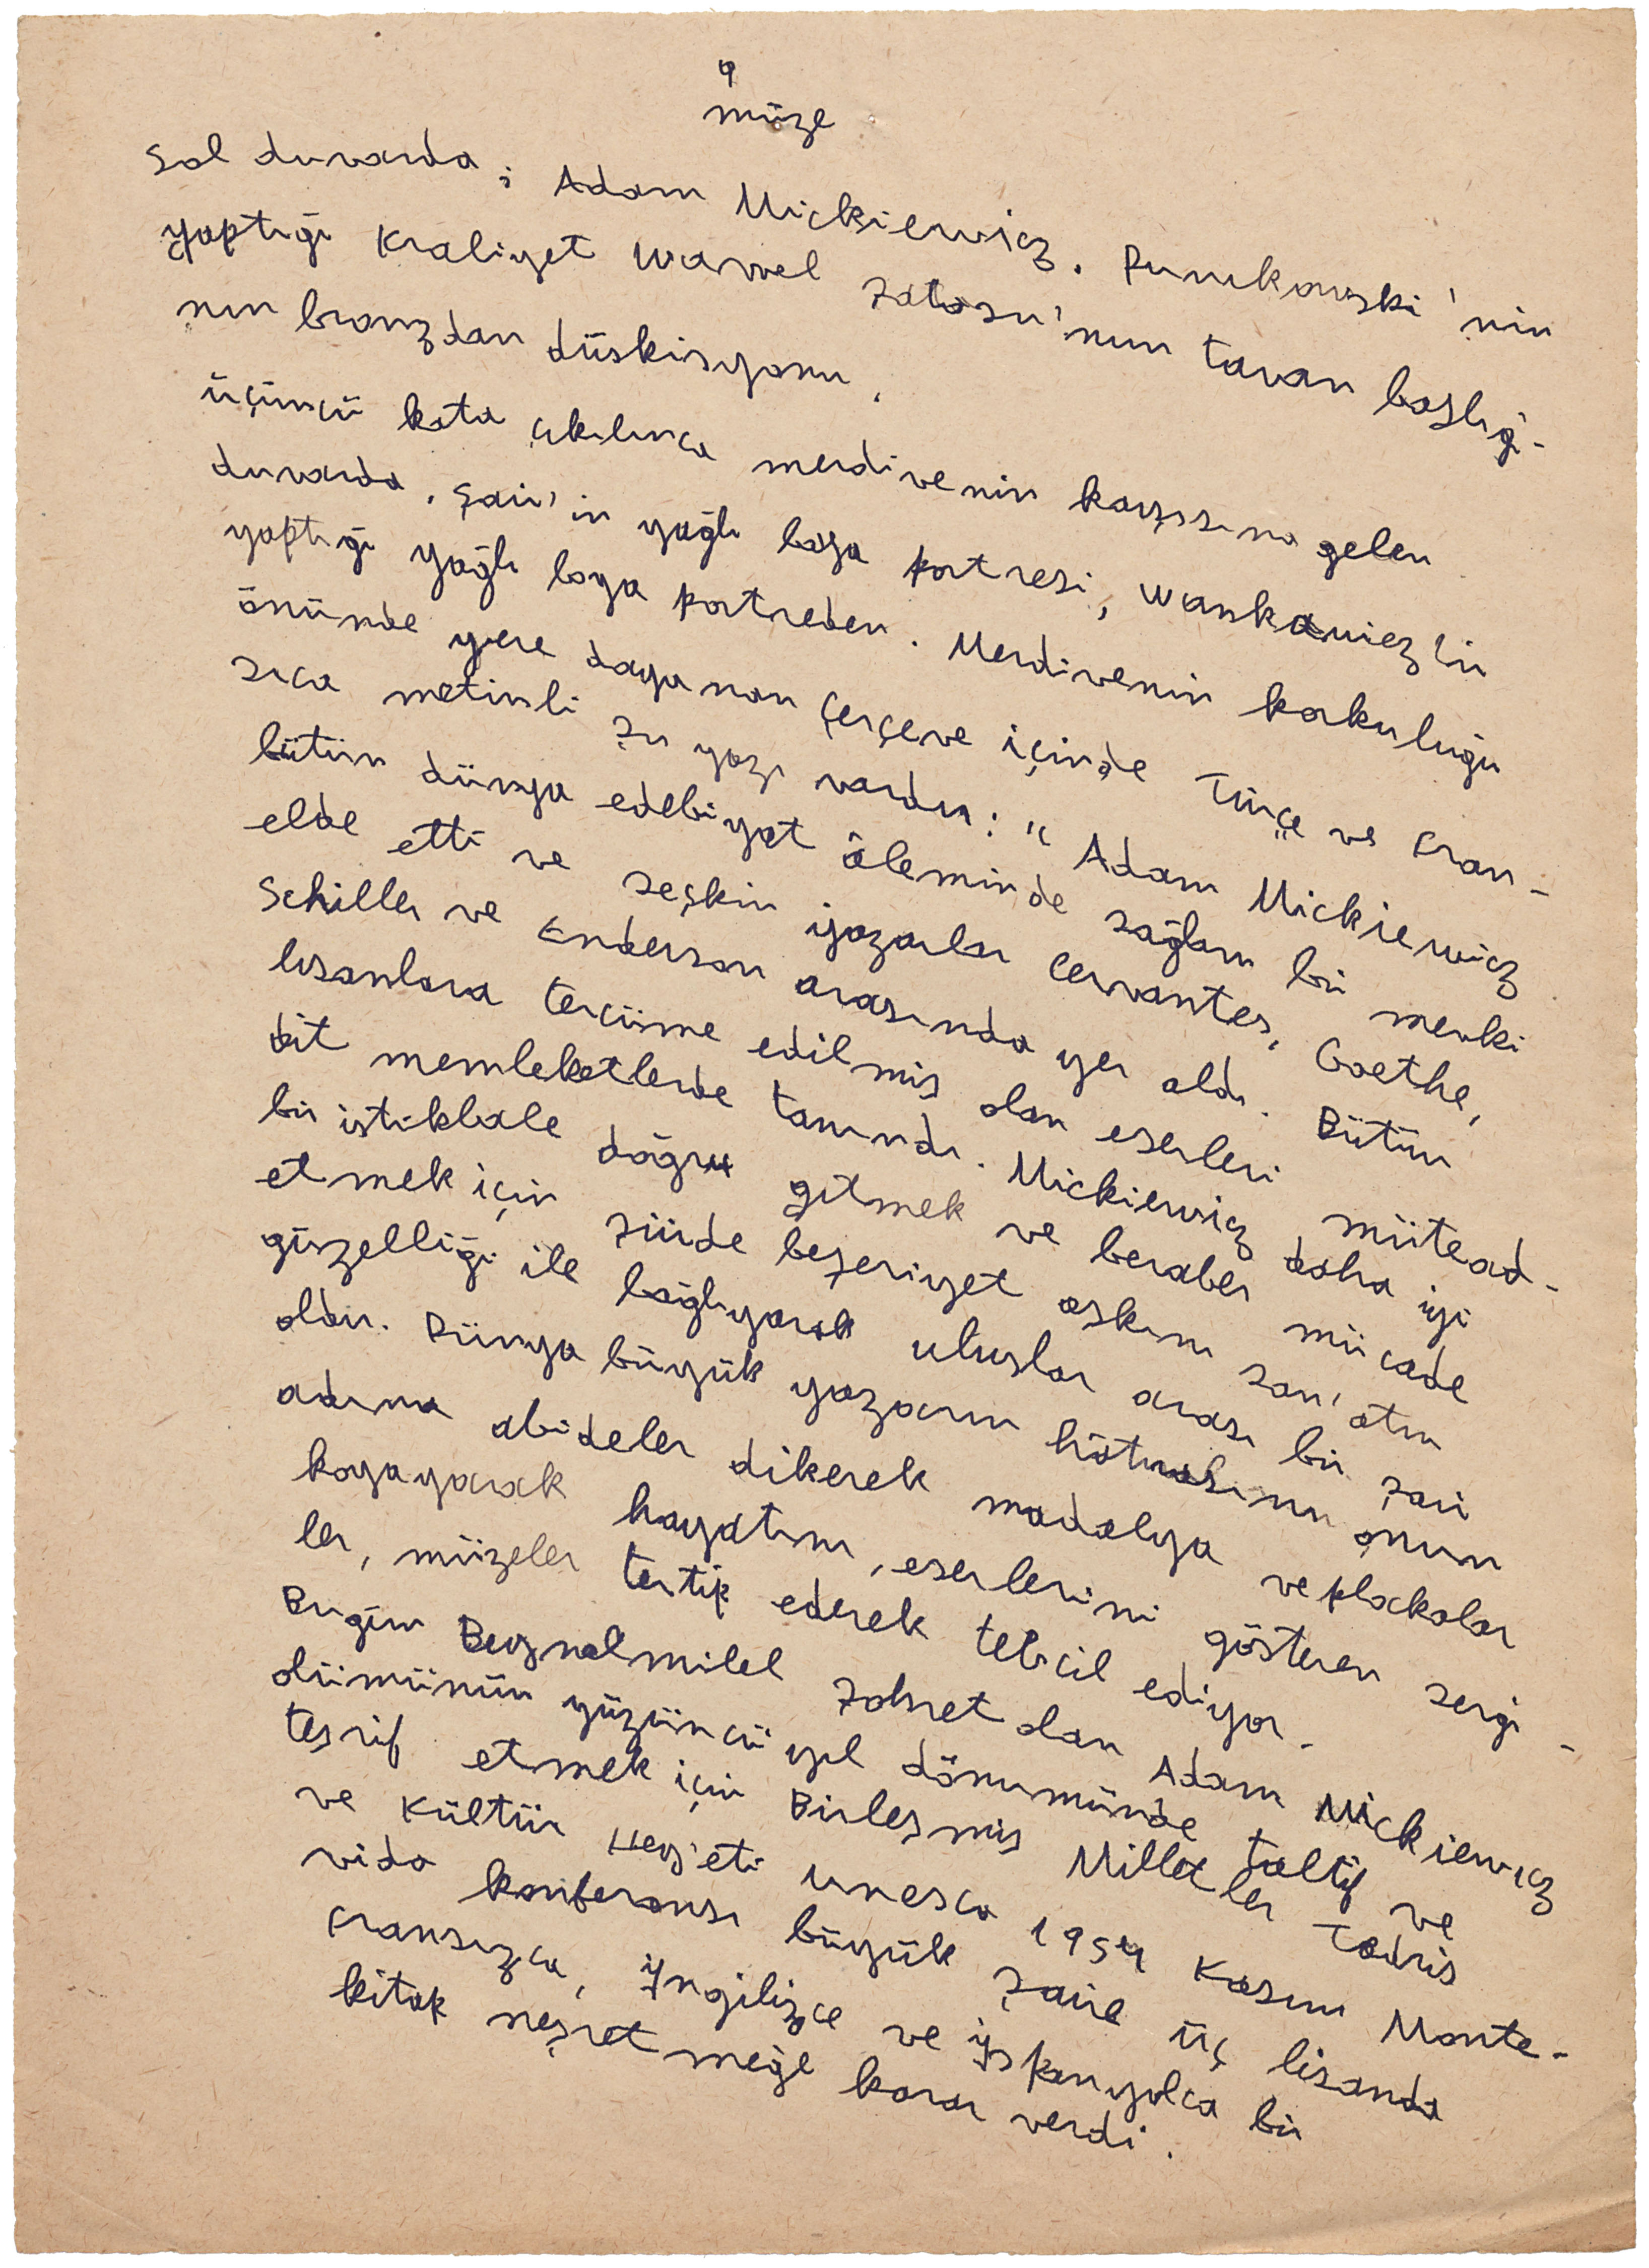 9
müze
Sol duvarda ; Adam Mickiewicz. Dunikowski 'nin
yaptığı Kraliyet Wawel Şatosu'nun tavan başlığ-
nın bronzdan
üçüncü kata çıkılınca merdivenin karşısına gelen
duvarda, Şair'in yağlı boya portresi, Wankowicz'in
yaptığı yağlı boya portreden. Merdivenin korkuluğu
önünde yere dayanan çerçeve içinde Türçe ve Fran-
sıca metinli şu yazı vardır: " Adam Mickiewicz
bütün dünya edebiyat âleminde sağlam bir mevki
elde etti ve seçkin yazarlar Cervantes, Goethe,
Schiller ve Enderson arasında yer aldı. Bütün
lisanlara tercüme edilmiş olan eserleri mütead-
dit memleketlerde tanındı. Mickiewicz daha iyi
bir istikbale doğru gitmek ve beraber mücade
etmek için şiirde beşeriyet aşkını san'atın
güzelliği ile bağlıyarak uluslar arası bir şair
oldu. Dünya büyük yazarın hâtırasını onun
adına abideler dikerek madalya ve plakalar
koyayarak hayatını, eserlerini gösteren sergi-
ler, müzeler tertip ederek tebcil ediyor.
Bugün Beynalmilel şohret olan Adam Mickiewicz
ölümünün yüzüncü yıl dönumünde taltif ve
teşrif etmek için Birleşmiş Milletler Tedris
ve Kültür Hey'eti Unesco 1954 Kasım Monte-
vido konferansı büyük şaire üç lisanda
Fransızca, İngilizce ve İspanyolca bir
kitap neşretmeğe karar verdi.